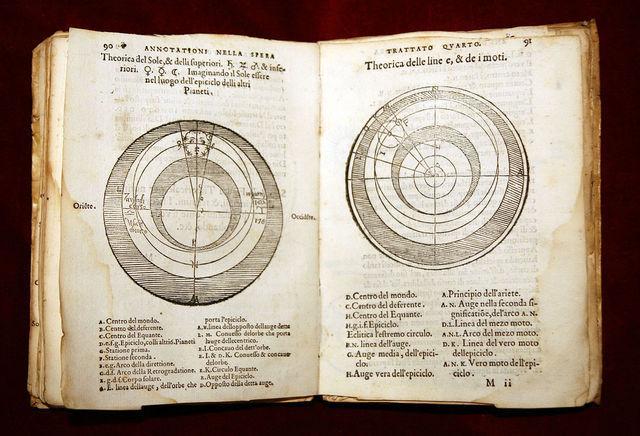 90
ANNOTATIONI NELLA SPERA
Theorica del Sole, & della superiori. ♄ ♃ ♂ & infe-
riori. ♀ ☿ ☾. Imaginando il Sole essere
nel luogo dell'epiciclo delli altri
Pianeti.
Oriẽte.
Occidẽte.
A. Centro del mondo.
B. Centro del deferente.
C. Centro del Equante.
D.e.f.g. Epiciclo, co gli altri s. Pianeti
G. Statione prima.
F. Statione seconda.
E.g. Arco della direttione.
G.d.f. Arco della Retrogradatione.
E.g.d.f. Corpo solare.
E. linea dell auge, dell'orbe, che
porta l'epiciclo.
A. linea dell opposto dell auge
M. Conuesso del orbe che porta
l auge dell eccentrico.
L.I. Concauo del dett'orbe.
L. I. & D. K. Conuesso & concauo
del orbe.
K. Circulo Equante.
Auge del Epiciclo.
D. Opposto della detta auge.
TRATTATO QVARTO.
91
Theorica delle line e, & de i moti.
D. Centro del mondo.
C. Centro del deferente.
H. Centro del Equante.
H.g.i.f. Epiciclo.
Eclitica l'estremo circulo.
B.N. linea dell'auge.
G. Auge media, dell'epici-
clo.
H. Auge vera dell'epiciclo.
A. Principio dell'ariete.
A. N. Auge nella seconda si-
gnificatiõe, del'arco A. N.
D.L. Linea del mezo moto.
A.N.L. Arco del mezo moto.
D.K. Linea del vero moto
dell epiciclo.
A. N. K. Vero moto dell'epi-
ciclo.
M ii